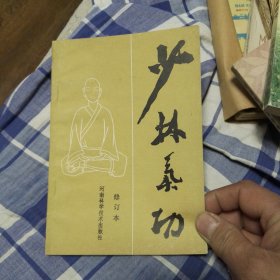 少林气功
修订本
河南科学技术出版社